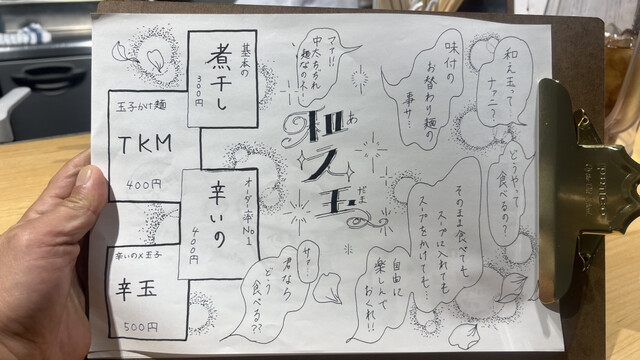 和え玉って…
ナァニ？
味付の
お替わり麺の
事サ…
マァ!!
中太ちぢれ
麺なのネ…
和え玉
あ
だま
どうやって
食べるの？
そのまま食べても
スープに入れても
スープをかけても…
自由に
楽しんで
おくれ!!
サァ!
君なら
どう
食べる??
基本の
煮干し
300円
玉子かけ麺
TKM
400円
オーダー率No.1
辛いの
400円
辛いの×玉子
辛玉
500円